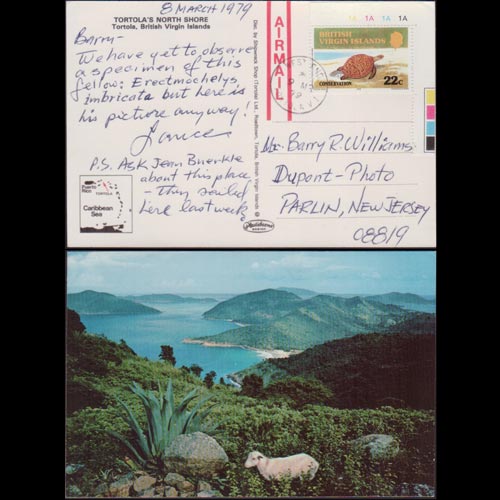 8 MARCH 1979
TORTOLA'S NORTH SHORE
Tortola, British Virgin Islands
Barry-
We have yet to observe
a specimen of this
fellow: Erectmochelys
imbricata but here is
his picture anyway!
Lance
P.S. Ask Jean Buerkle
about this place
- they sailed
here last week.
Puerto
Rico
TORTOLA
Caribbean
Sea
AIRMAIL
1A 1A 1A 1A
BRITISH
VIRGIN ISLANDS
CONSERVATION
22c
Mr. Barry R. Williams
Dupont-Photo
PARLIN, NEW JERSEY
08819